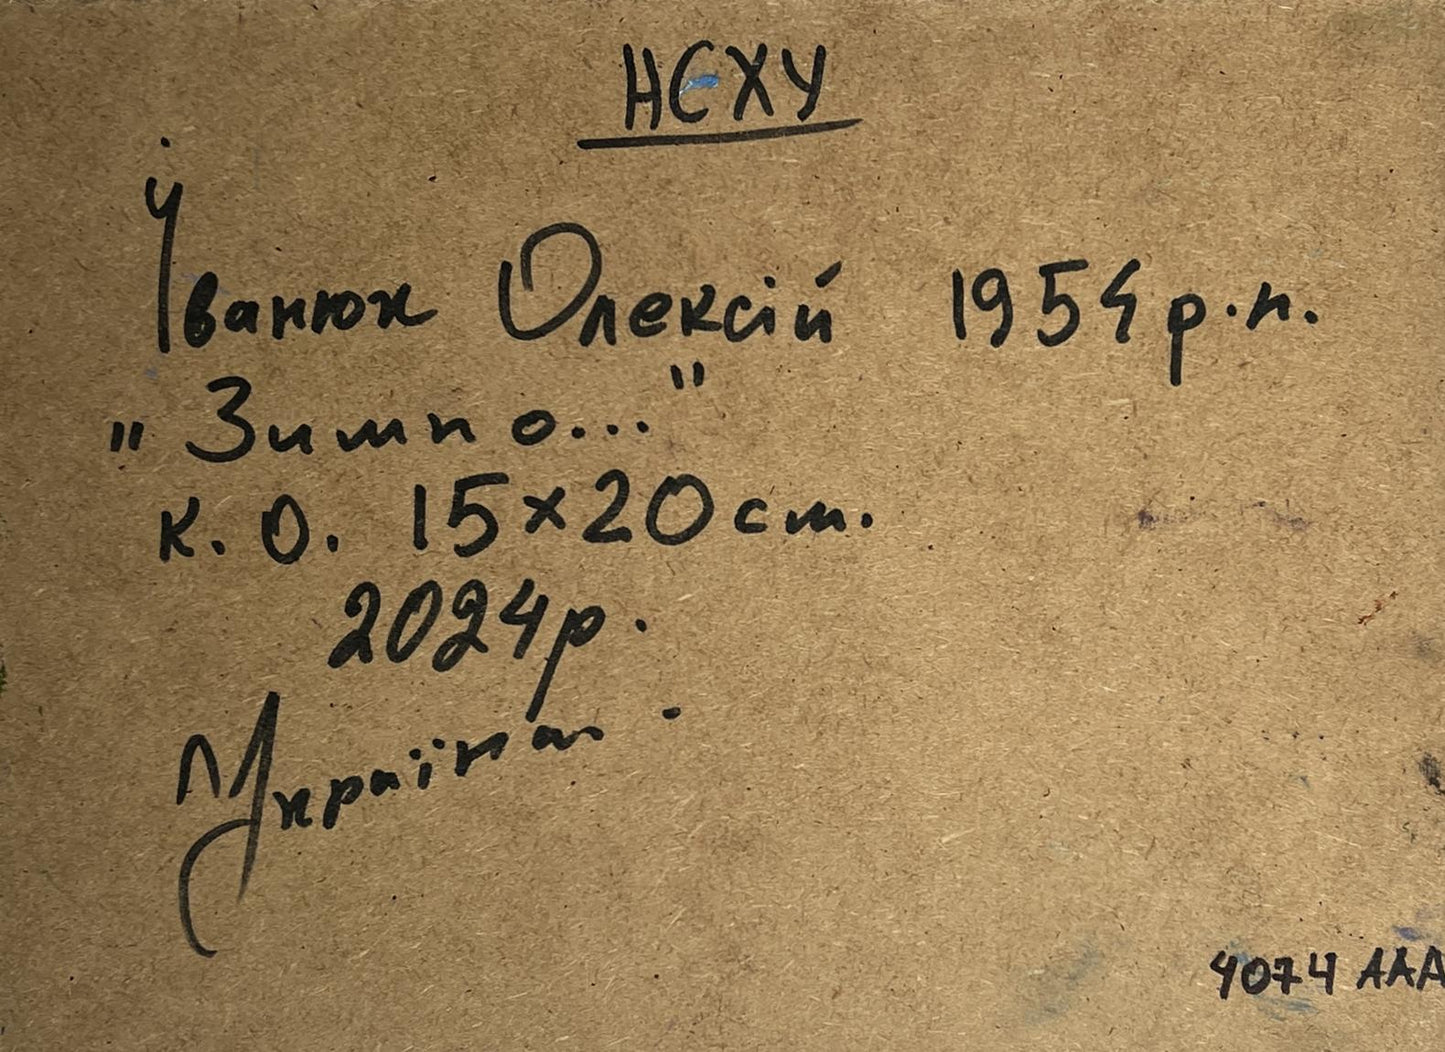 НЄХУ
Іванюк Олексій 1954 р.н.
"Зимно..."
к.о. 15х20 см.
2024р.
Україна.
4074 ААА